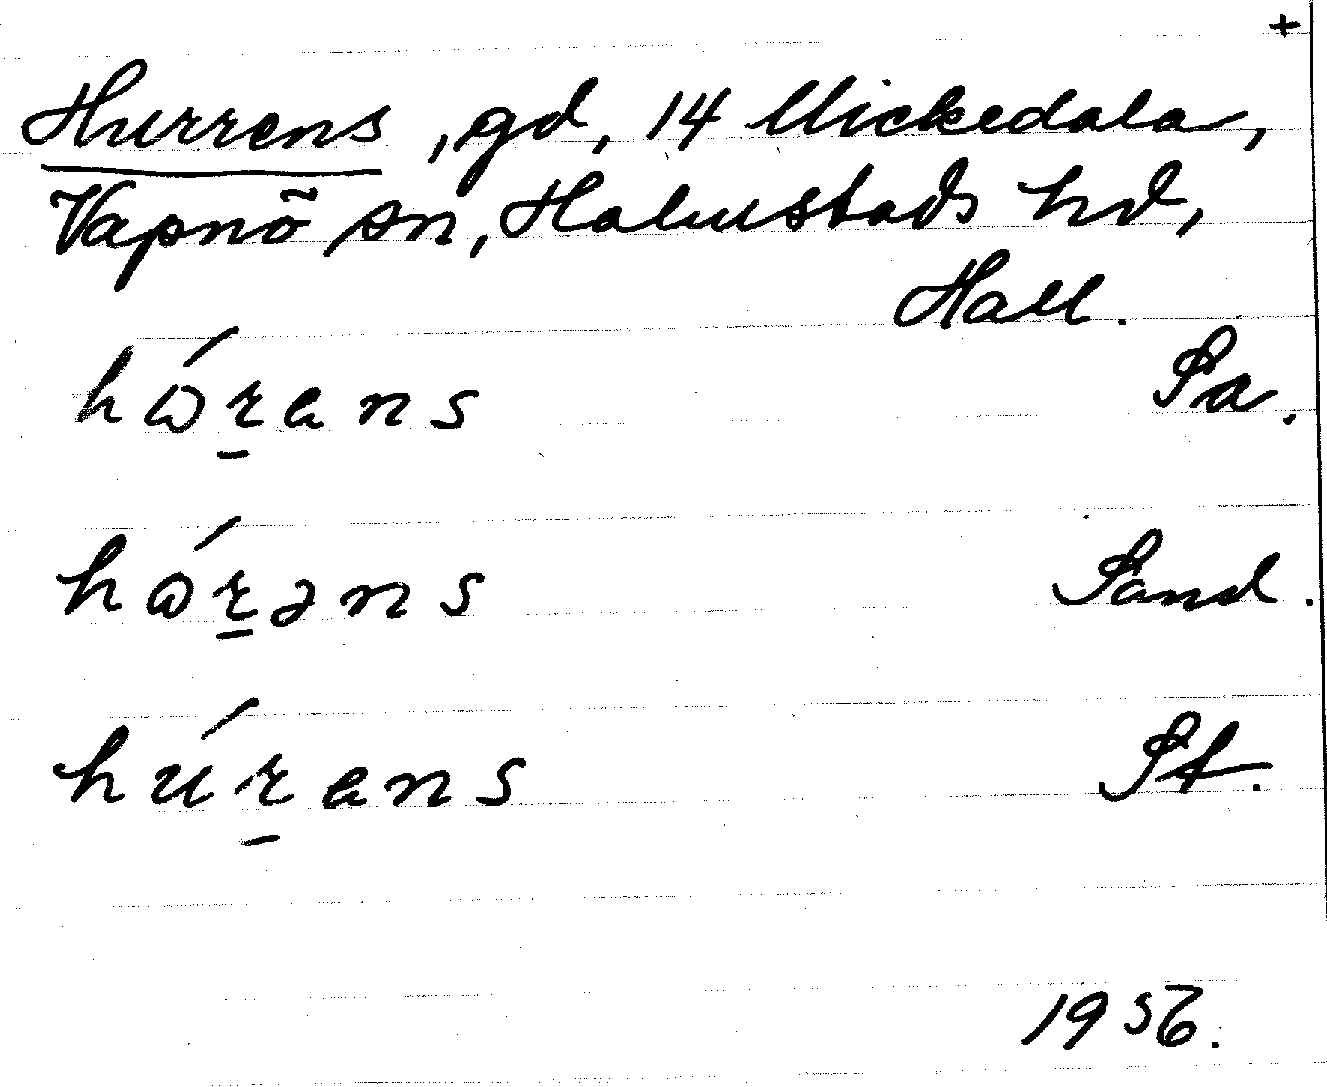 +
Hurrens, gd, 14 Mickedala,
Vapnö sn, Halmstads hd,
Hall.
hɷ́r̲ans Sa.
hɷ́r̲əns Sand.
húr̲ans St.
1936.